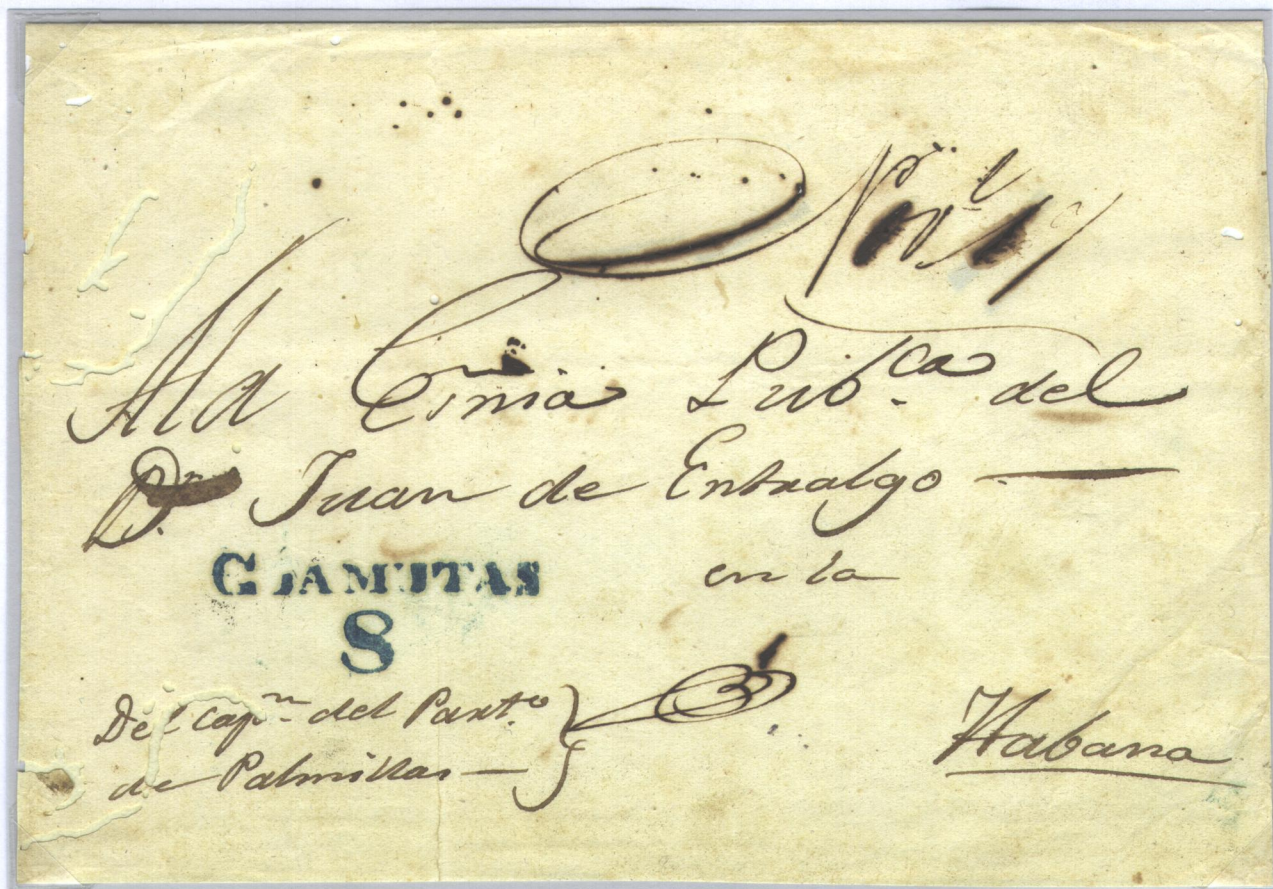 A la Esñia Pubca. del
Dn. Juan de Entralgo —
en la
GUAMUTAS
8
Del Capn. del Parto.
de Palmillas —
Habana